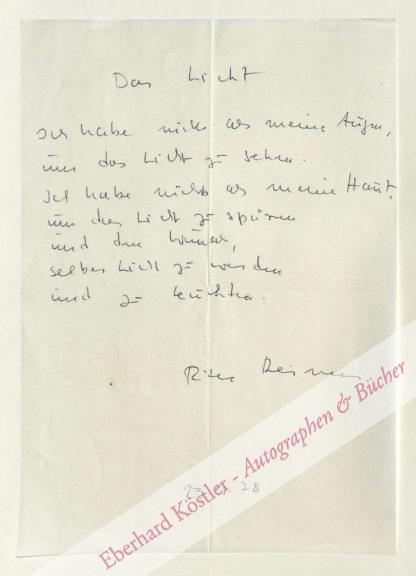 Das Licht
Ich habe nichts als meine Augen,
um das Licht zu sehen.
Ich habe nichts als meine Haut,
um das Licht zu spüren
und den Wunsch,
selber Licht zu werden
und zu leuchten.
Eberhard Köstler - Autographen & Bücher
78